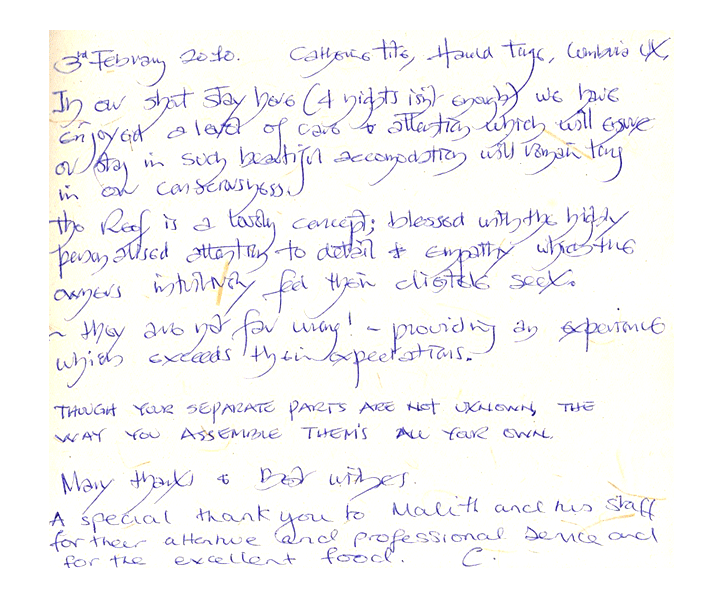 3rd February 2010. Catherine Harold Cumbria UK.
In our short stay here (4 nights isn't enough) we have
enjoyed a level of care & attention which will ensure
our stay in such beautiful accomodation will remain long
in our consciousness.
The Reef is a lovely concept; blessed with the highly
personalised attention to detail & empathy which the
owners intuitively feel their clientele seek.
~ they are not far wrong! ~ providing an experience
which exceeds their expectations.
THOUGH YOUR SEPARATE PARTS ARE NOT UKNOWN, THE
WAY YOU ASSEMBLE THEM'S ALL YOUR OWN.
Many thanks & Best wishes.
A special thank you to and his staff
for their attentive and professional service and
for the excellent food. C.